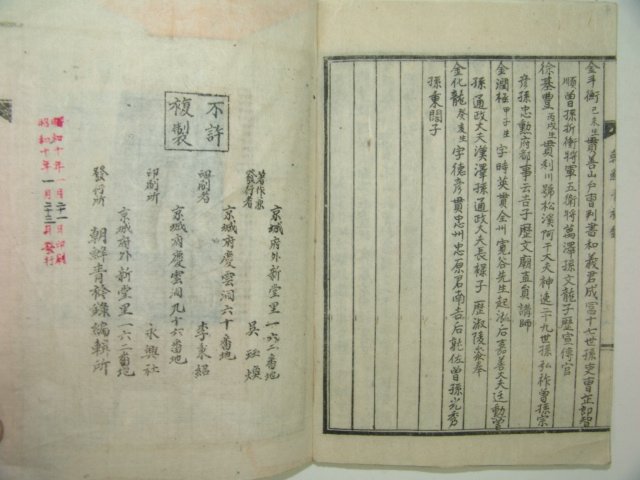 金斗衡己未生貫善山戶曹判書和義君成富十七世孫吏曹正郎智
順曾孫折衝將軍五衛將萬澤孫文龍子歷宣傳官
徐基豊丙戌生貫利川號松溪阿干大夫神逸二十九世孫弘祚曾孫宗
彦孫忠勳府都事云吉子歷文廟直員講師
金潤極甲子生字時英貫金州寬谷先生起泓后嘉善大夫廷勳曾
孫通政大夫漢澤孫通政大夫長祿子歷淑陵參奉
金化龍癸亥生字德彦貫忠州忠原君南吉后乾佐曾孫光秀
孫秉闊子
不許
複製
著作兼
發行者
京城府外新堂里一六二番地
吳
煥
印刷者
京城府慶雲洞六十番地
李
紹
印刷所
京城府慶雲洞九十六番地
永興社
發行所
京城府外新堂里一六二番地
朝鮮靑衿錄編輯所
昭和十年一月二十一日印刷
昭和十年一月二十三日發行